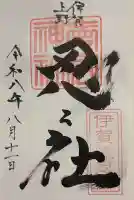 伊賀
上野
忍之社
令和八年八月十一日
伊賀